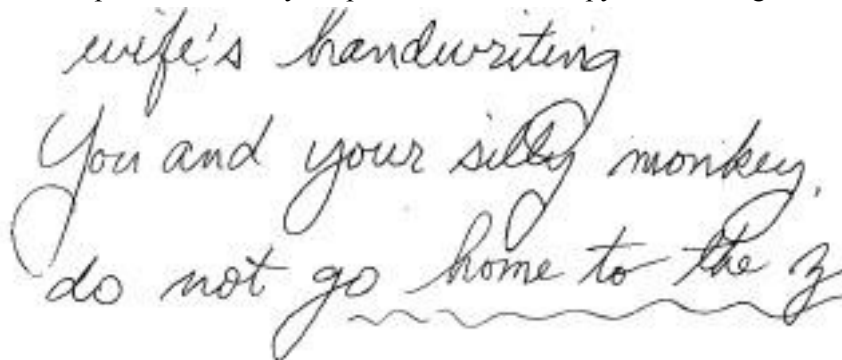 wife's handwriting
You and your silly monkey,
do not go home to the z